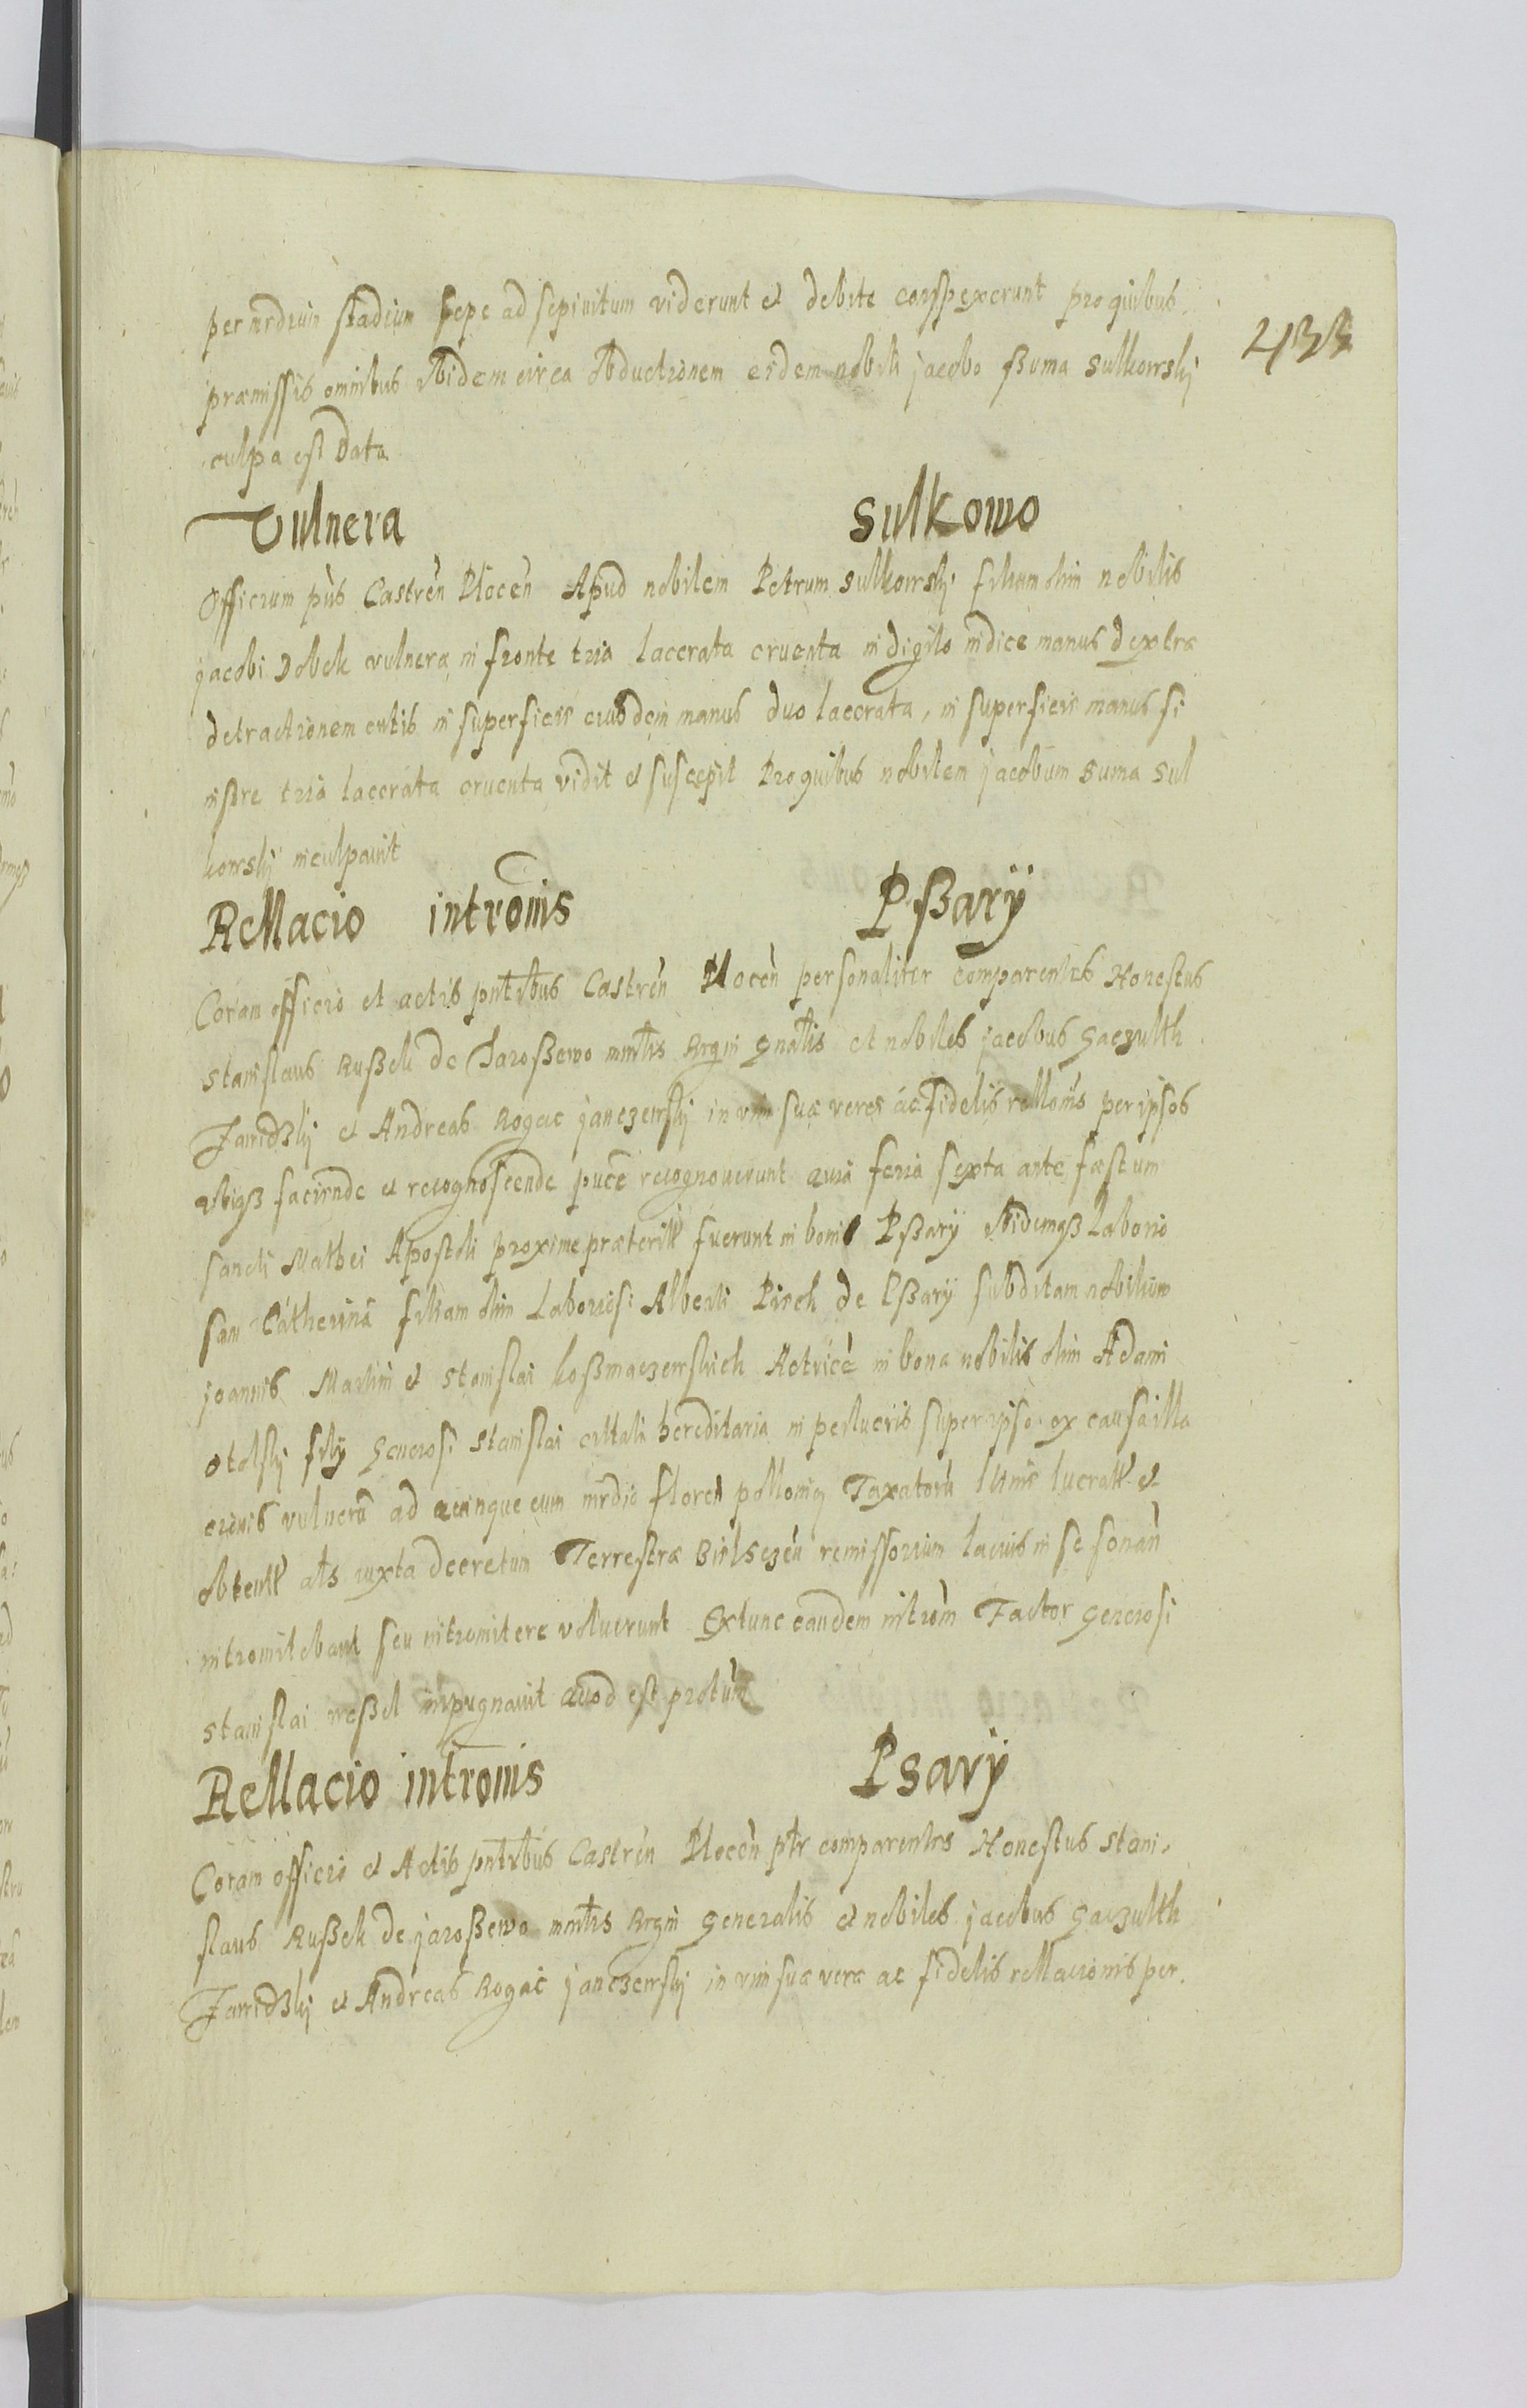 per medium stadium sepe ad sepimitum viderunt et debite conspexerunt pro quibus
433
præmissis omnibus ibidem circa obductionem eidem nobili jacobo ßuma sulkowskÿ
culpa est data
Vulnera Sulkowo
Officium pñs Castreñ Ploceñ Apud nobilem Petrum sulkowskÿ filium olim nobilis
jacobi Dobek vulnera in fronte tria lacerata cruenta in digito indice manus dextræ
detractionem cutis in superficie eiusdem manus duo lacerata, in superficie manus si
nistre tria lacerata cruenta vidit et suscepit Pro quibus nobilem jacobum suma sul
kowskÿ inculpavit
Rellacio intromis Pßarÿ
Coram officio et actis pñtibus Castreñ Ploceñ personaliter comparentes Honestus
stanislaus Rußek de Jaroßewo mntris Regni gnalis et nobiles jacobus gaczulth
Jawidzkÿ et Andreas Rogac janczewskÿ in vim suæ veræ ac fidelis relloñis per ipsos
ubiqß faciende et recognoscende puce recognoverunt quia feria sexta ante fæstum
sancti Mathei Apostoli proxime præterit fuerunt in bonis Pßarÿ ibidemqß Laborio
sam Catherinã filiam olim Laboriosi Alberti Pirch de Pßarÿ subditam nobilium
joannis Martini et stanislai koßmaczewskich Actricẽ in bona nobilis olim Adami
otolskÿ filÿ Generosi stanislai hereditaria in perlucris super ipso ex causa illa
vulnerũ ad quinque cum medio floreñ polloniq Taxatorũ lucrat et
obtent als iuxta decretum Terrestræ Bielsczeñ remissorium lacius in se sonañ
intromitebant seu intromitere voluerunt Extunc eandem introm Factor generosi
stanislai weßel inpugnavit quod est protum
Rellacio intromis Psarÿ
Coram officio et Actis pñtibus Castreñ Ploceñ ptr comparentes Honestus stani-
slaus Rußek de jaroßewo mntris Regni generalis et nobiles jacobus gaczulth
Jawidzkÿ et Andreas Rogac janczewskÿ in vim suæ veræ ac fidelis rellacionis per